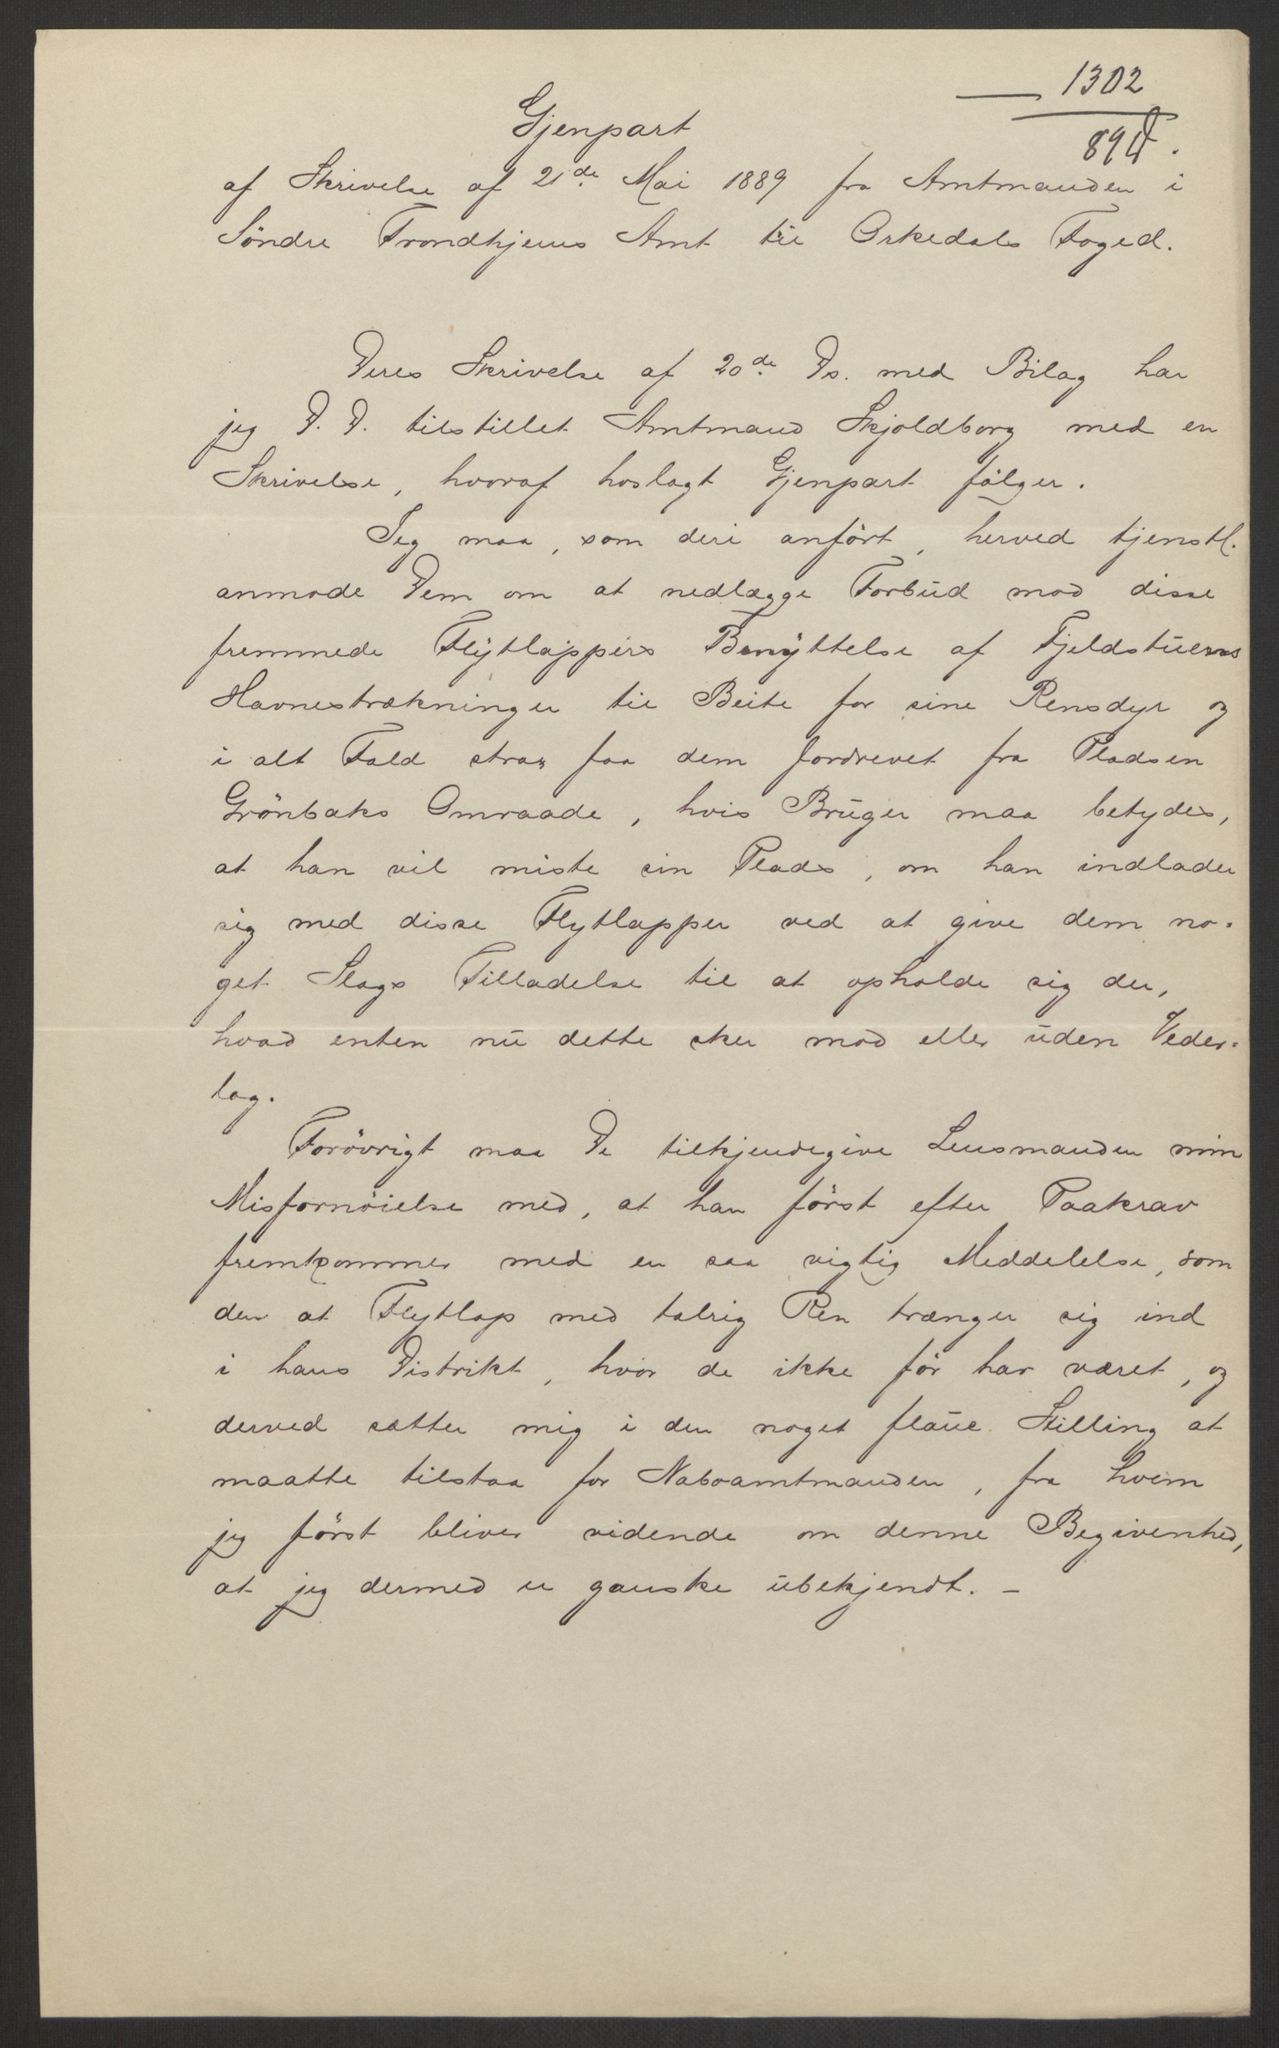 1302
89
Gjenpart
af Skrivelse af 21de Mai 1889 fra Amtmanden i
Söndre Trondhjems Amt til Orkedals Foged.
Deres Skrivelse af 20de Ds. med Bilag har
jeg D. D. tilstillet Amtmand Skjoldborg med en
Skrivelse, hvoraf hoslagt Gjenpart fölger.
Jeg maa, som deri anfört, herved tjenstl.
anmode Dem om at nedlægge Forbud mod disse
fremmede Flytlappers Benyttelse af Fjeldstuernes
Havnestrækninger til Beite for sine Rensdyr og
i alt Fald strax faa dem fordrevet fra Pladsen
Grönbaks Omraade, hvis Bruger maa betydes,
at han vil miste sin Plads, om han indlader
sig med disse Flytlapper ved at give dem no-
get Slags Tilladelse til at opholde sig der,
hvad enten nu dette sker mod eller uden Veder-
lag.
Forövrigt maa De tilkjendegive Lensmanden min
Misfornöielse med, at han först efter Paakrav
fremkommer med en saa vigtig Meddelelse, som
den at Flytlap med talrig Ren trænger sig ind
i hans Distrikt, hvor de ikke för har været, og
derved sætter mig i den noget flaue Stilling at
maatte tilstaa for Naboamtmanden, fra hvem
jeg först bliver vidende om denne Begivenhed,
at jeg dermed er ganske ubekjendt. -